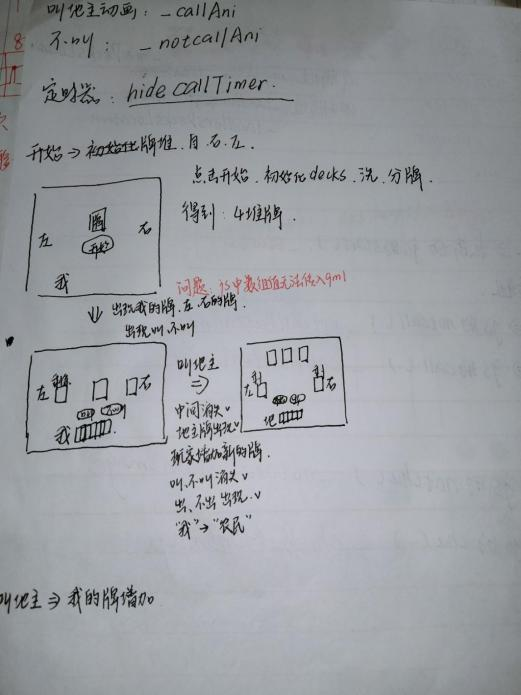 叫地主动画：_callAni
不叫：_notcallAni
定时器：hide callTimer.
开始⇒初始化牌堆.自.右.左.
点击开始.初始化decks.洗.分牌.
得到：4堆牌.
左
右
开始
我
问题：js中数组值无法传入qml
⇓ 出现我的牌.左.右的牌.
出现叫.不叫
左
右
我
叫地主
⇒
中间消失√
地主牌出现√
玩家增加新的牌.
叫.不叫消失√
出.不出出现.√
"我"→"农民"
左
右
地
叫地主⇒我的牌增加